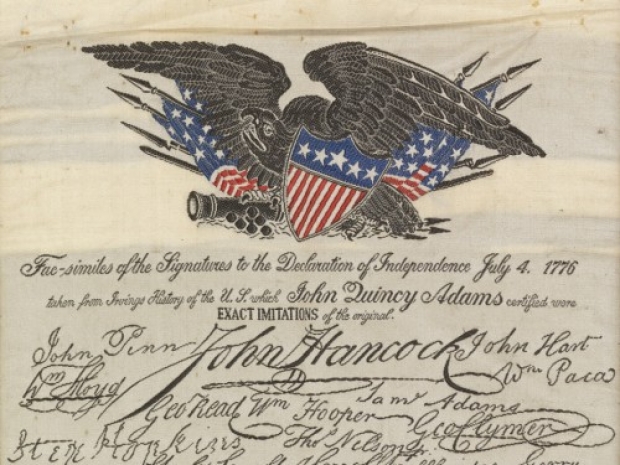 Fac-similes of the Signatures to the Declaration of Independence July 4. 1776
taken from Irvings History of the U.S. which John Quincy Adams certified were
EXACT IMITATIONS of the original.
John Penn John Hancock John Hart
Wm Floyd Wm Paca
Geo Read Wm Hooper Saml Adams
Geo Clymer
Step Hopkins Thos Nelson jr.
Gerry